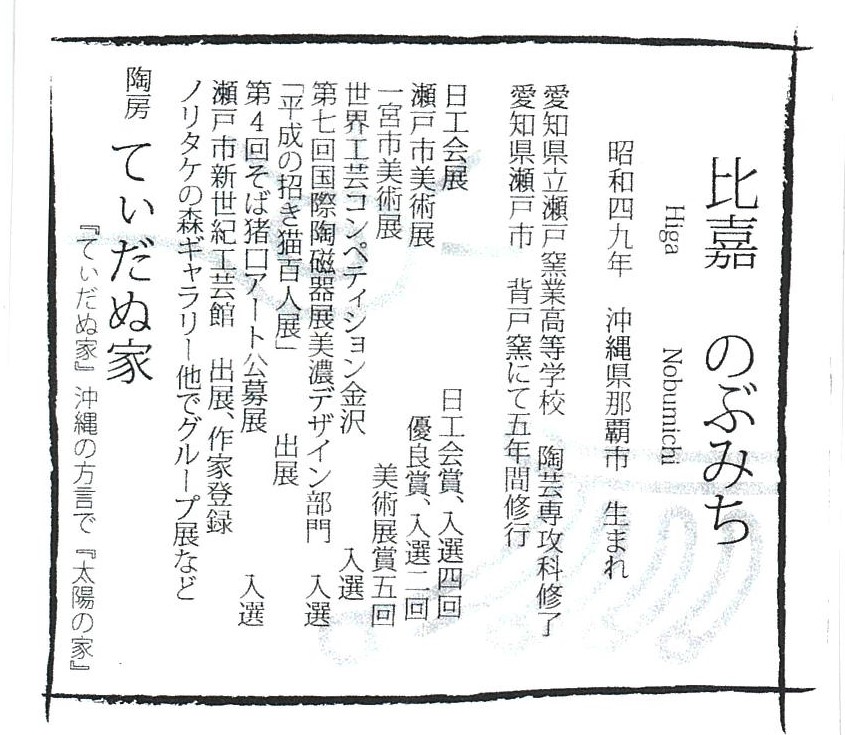 比嘉 のぶみち
Higa Nobumichi
昭和四九年 沖縄県那覇市 生まれ
愛知県立瀬戸窯業高等学校 陶芸専攻科修了
愛知県瀬戸市 背戸窯にて五年間修行
日工会展 日工会賞、入選四回
瀬戸市美術展 優良賞、入選二回
一宮市美術展 美術展賞五回
世界工芸コンペティション金沢 入選
第七回国際陶磁器展美濃デザイン部門 入選
「平成の招き猫百人展」 出展
第4回そば猪口アート公募展 入選
瀬戸市新世紀工芸館 出展、作家登録
ノリタケの森ギャラリー他でグループ展など
陶房 てぃだぬ家
『てぃだぬ家』沖縄の方言で『太陽の家』